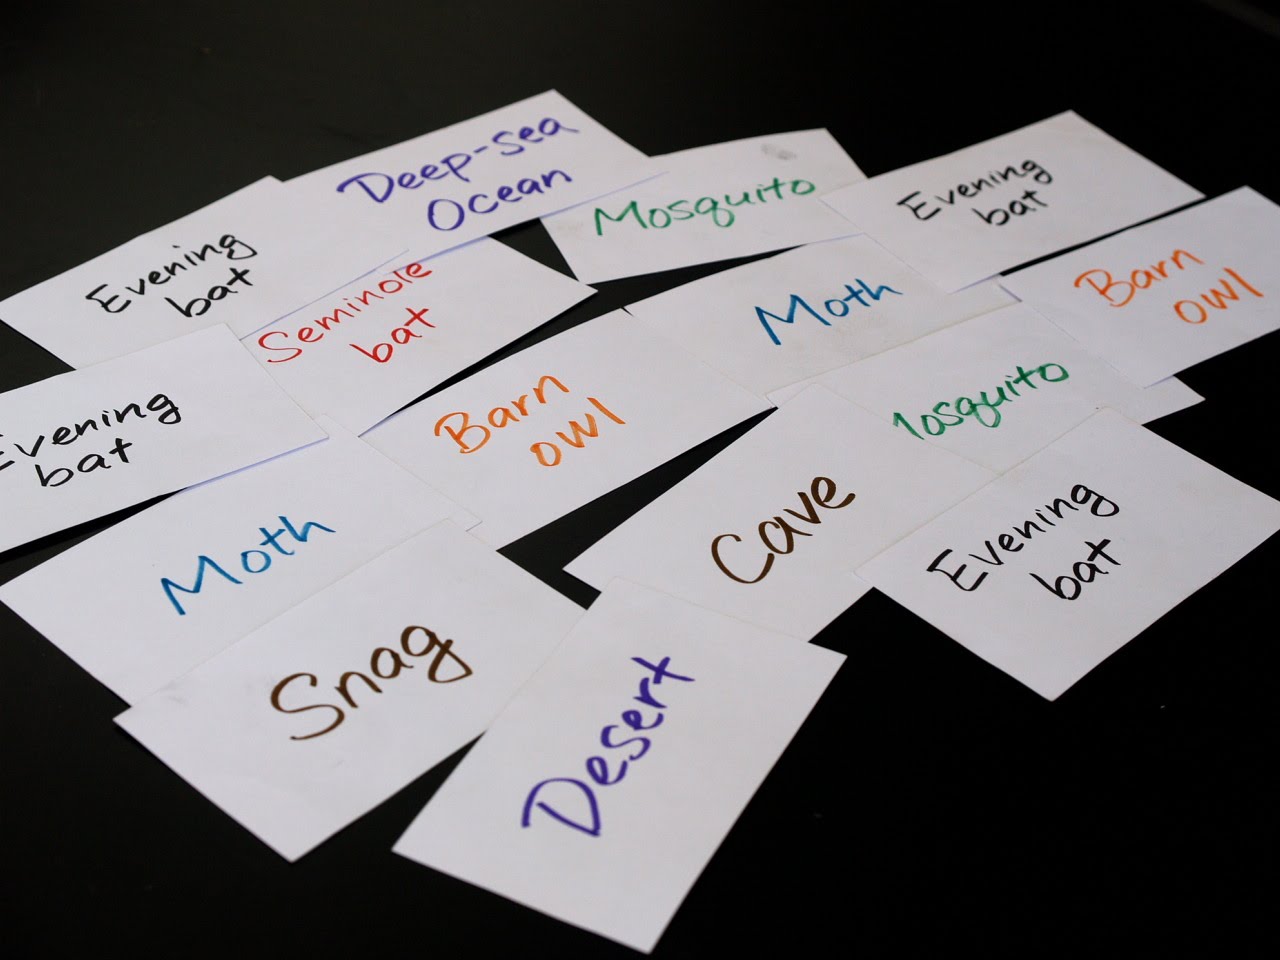 Deep-sea
Ocean
Mosquito
Evening
bat
Evening
bat
Seminole
bat
Moth
Barn
owl
Evening
bat
Barn
owl
losquito
Moth
Cave
Evening
bat
Snag
Desert